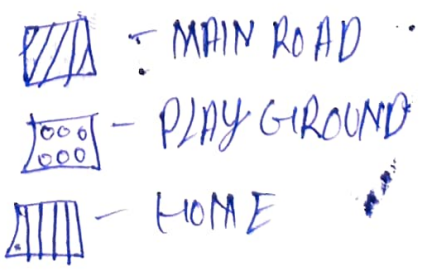 - MAIN ROAD
- PLAY GROUND
- HOME